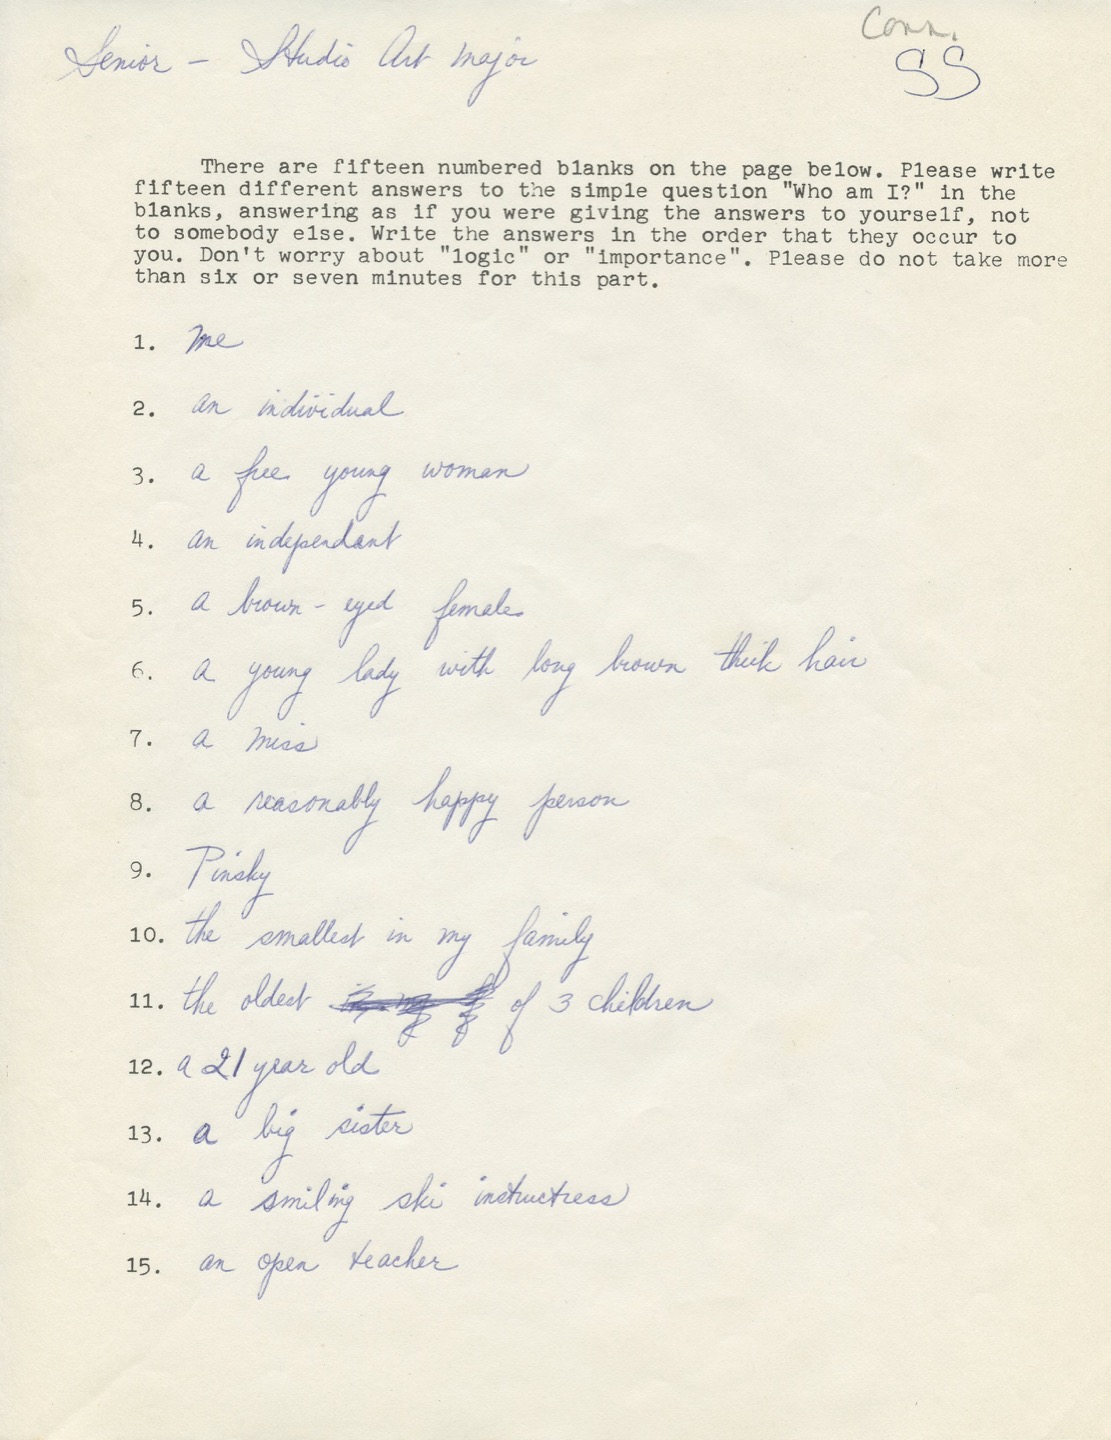 Conn.
Senior - Studio Art Major
SS
There are fifteen numbered blanks on the page below. Please write
fifteen different answers to the simple question "Who am I?" in the
blanks, answering as if you were giving the answers to yourself, not
to somebody else. Write the answers in the order that they occur to
you. Don't worry about "logic" or "importance". Please do not take more
than six or seven minutes for this part.
1. me
2. an individual
3. a free young woman
4. an independant
5. a brown-eyed female
6. a young lady with long brown thick hair
7. a miss
8. a reasonably happy person
9. Pinsky
10. the smallest in my family
11. the oldest of 3 children
12. a 21 year old
13. a big sister
14. a smiling ski instructress
15. an open teacher